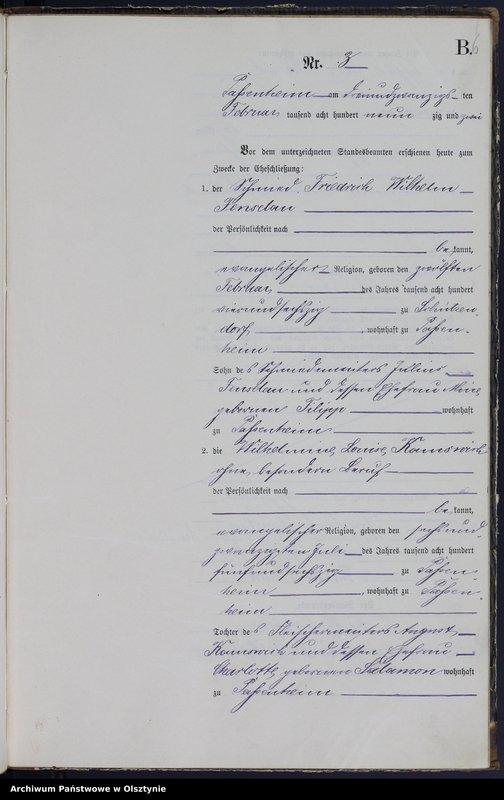 B. 6
Nr. 3
Passenheim am dreiundzwanzigs ten
Februar tausend acht hundert neun zig und zwei
Vor dem unterzeichneten Standesbeamten erschienen heute zum
Zwecke der Eheschließung:
1. der Schmied Friedrich Wilhelm
der Persönlichkeit nach
be kannt,
evangelischer Religion, geboren den zwölften
Februar des Jahres tausend acht hundert
vierundsechszig zu Schützen-
dorf, wohnhaft zu Passen-
heim
Sohn des Schmiedemeisters Julius
und dessen Ehefrau Mine
geborenen Filipp wohnhaft
zu Passenheim
2. die Wilhelmine Louise Kamswich
ohne besondern Beruf
der Persönlichkeit nach
be kannt,
evangelischer Religion, geboren den sechsund-
zwanzigsten Juli des Jahres tausend acht hundert
fünfundsechszig zu Passen-
heim, wohnhaft zu Passen-
heim
Tochter des Fleischermeisters August
Kamswich und dessen Ehefrau
Charlotte geborenen Salamon wohnhaft
zu Passenheim
Archiwum Państwowe w Olsztynie